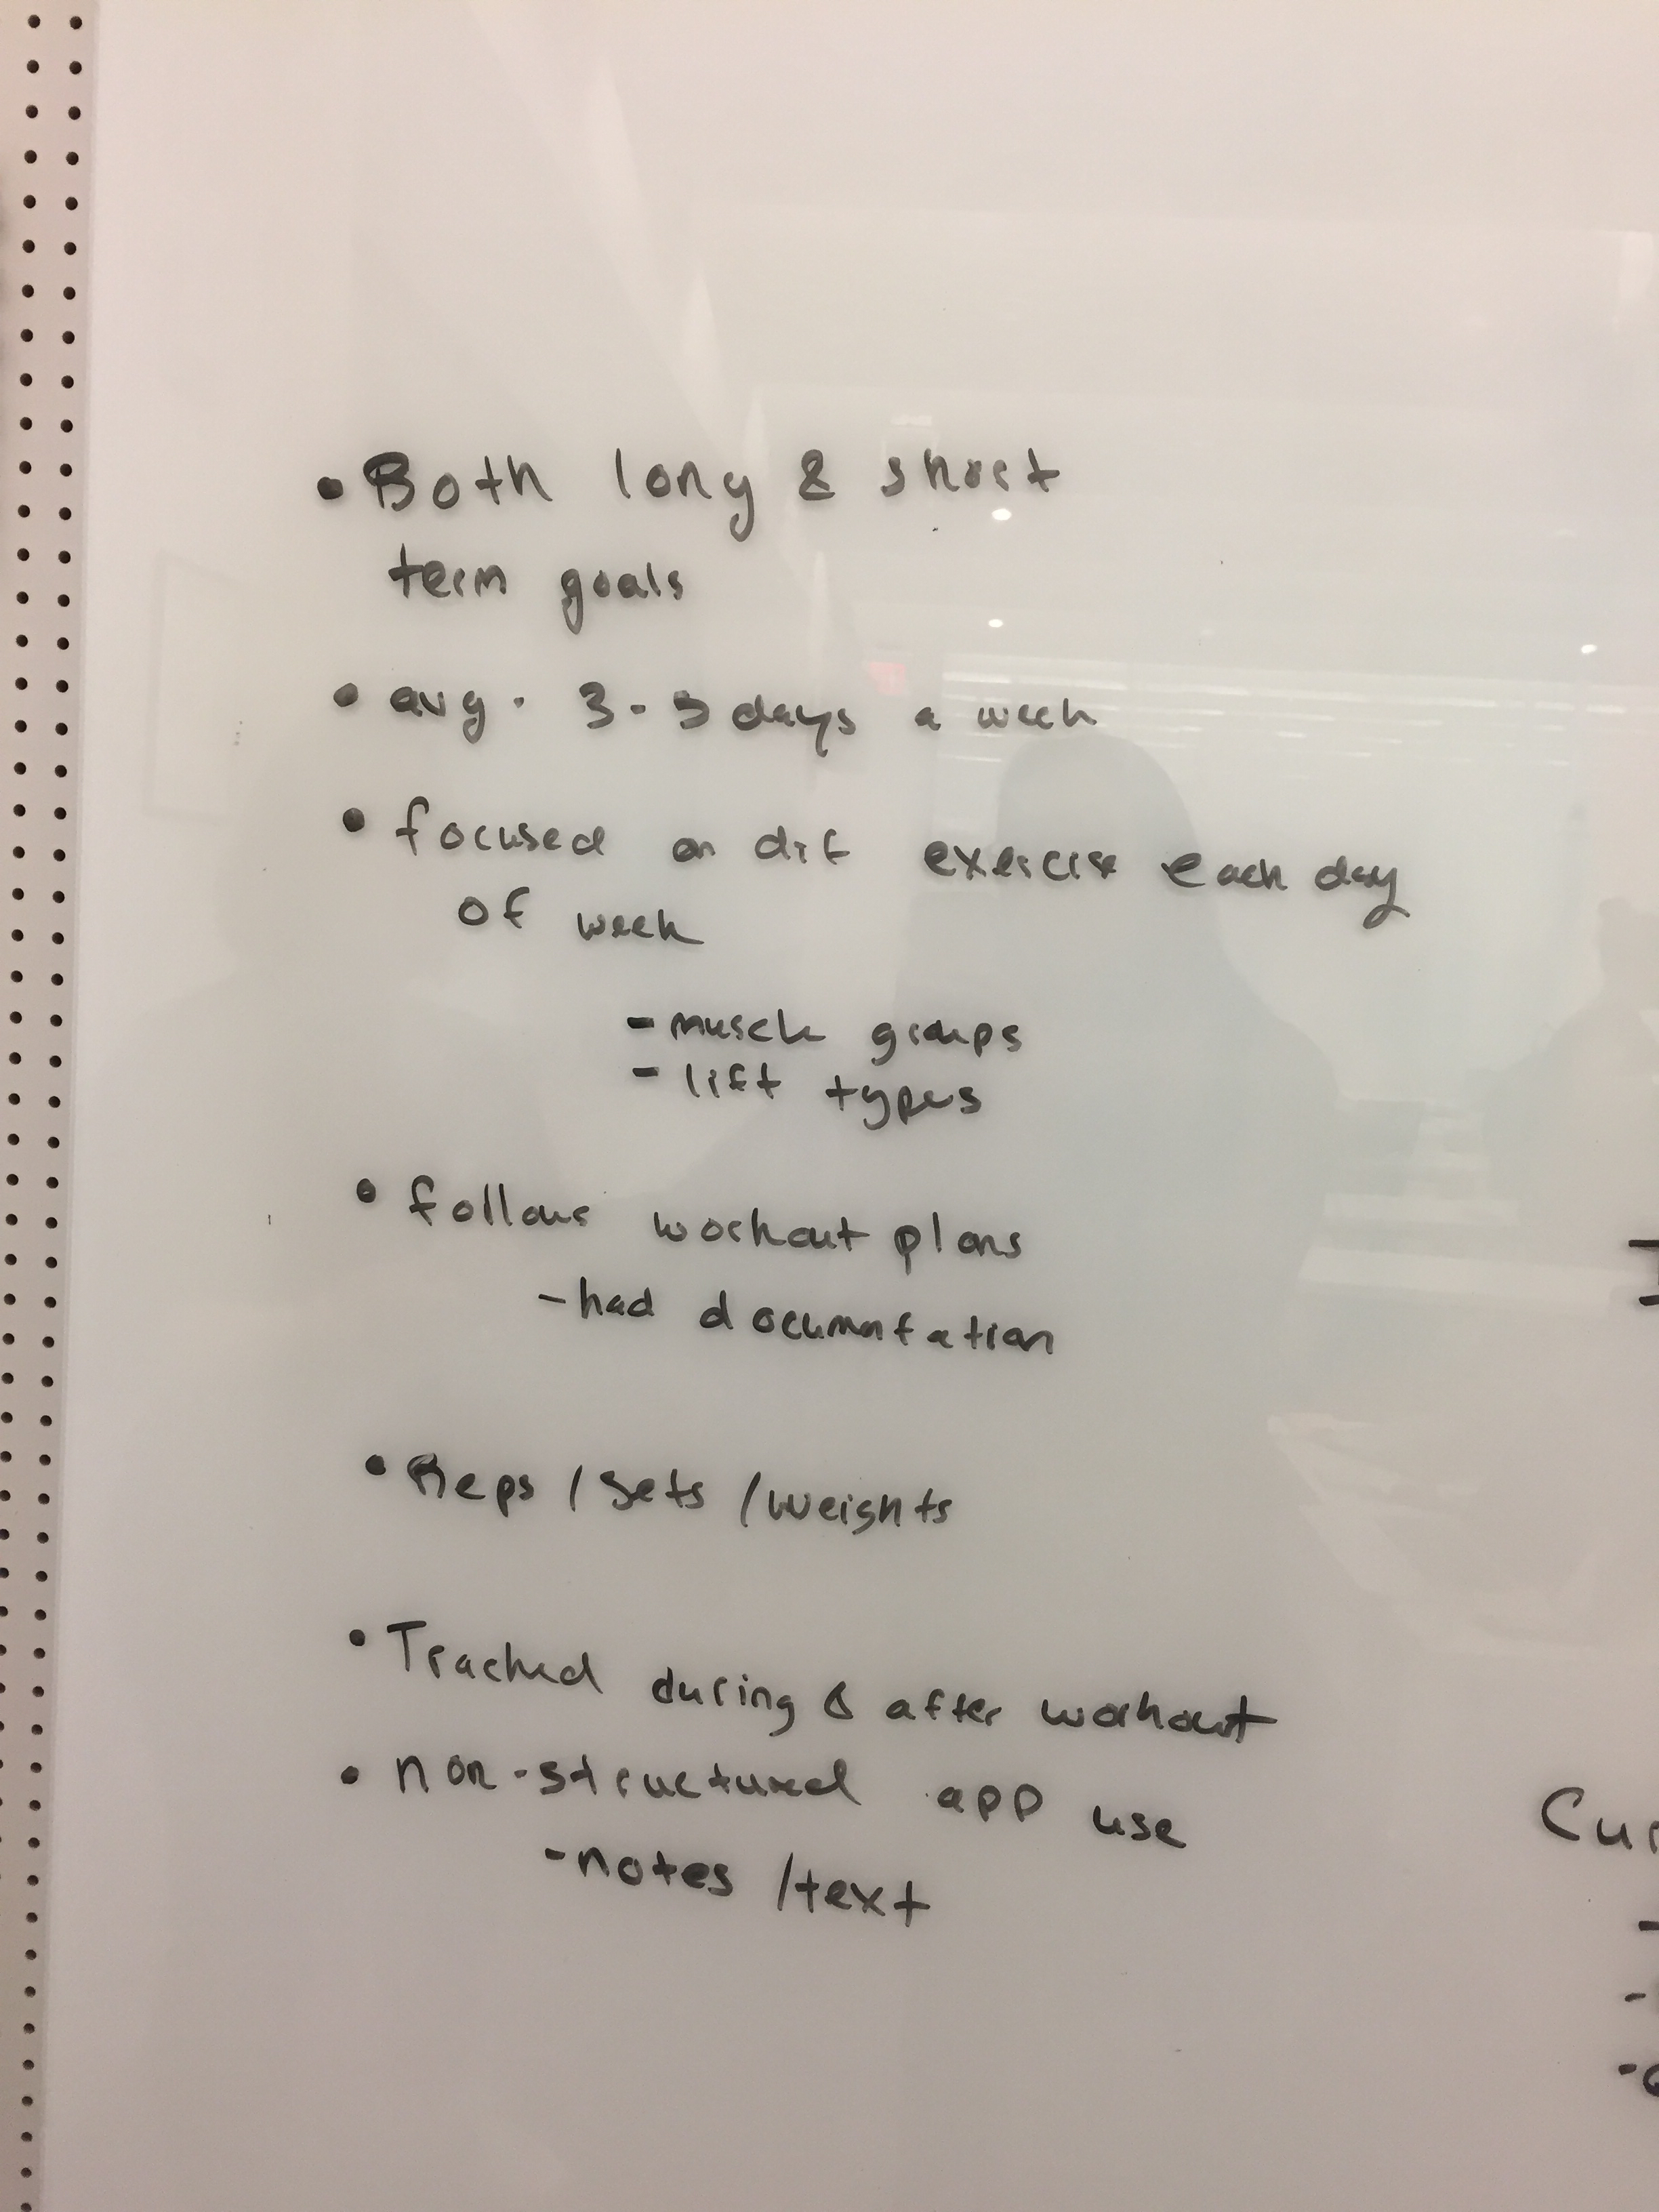 • Both long & short
term goals
• avg. 3-5 days a week
• focused on dif exercise each day
of week
- muscle groups
- lift types
• follows workout plans
- had documentation
• Reps / Sets / weights
• Tracked during & after workout
• non-structured app use
- notes / text
Cur